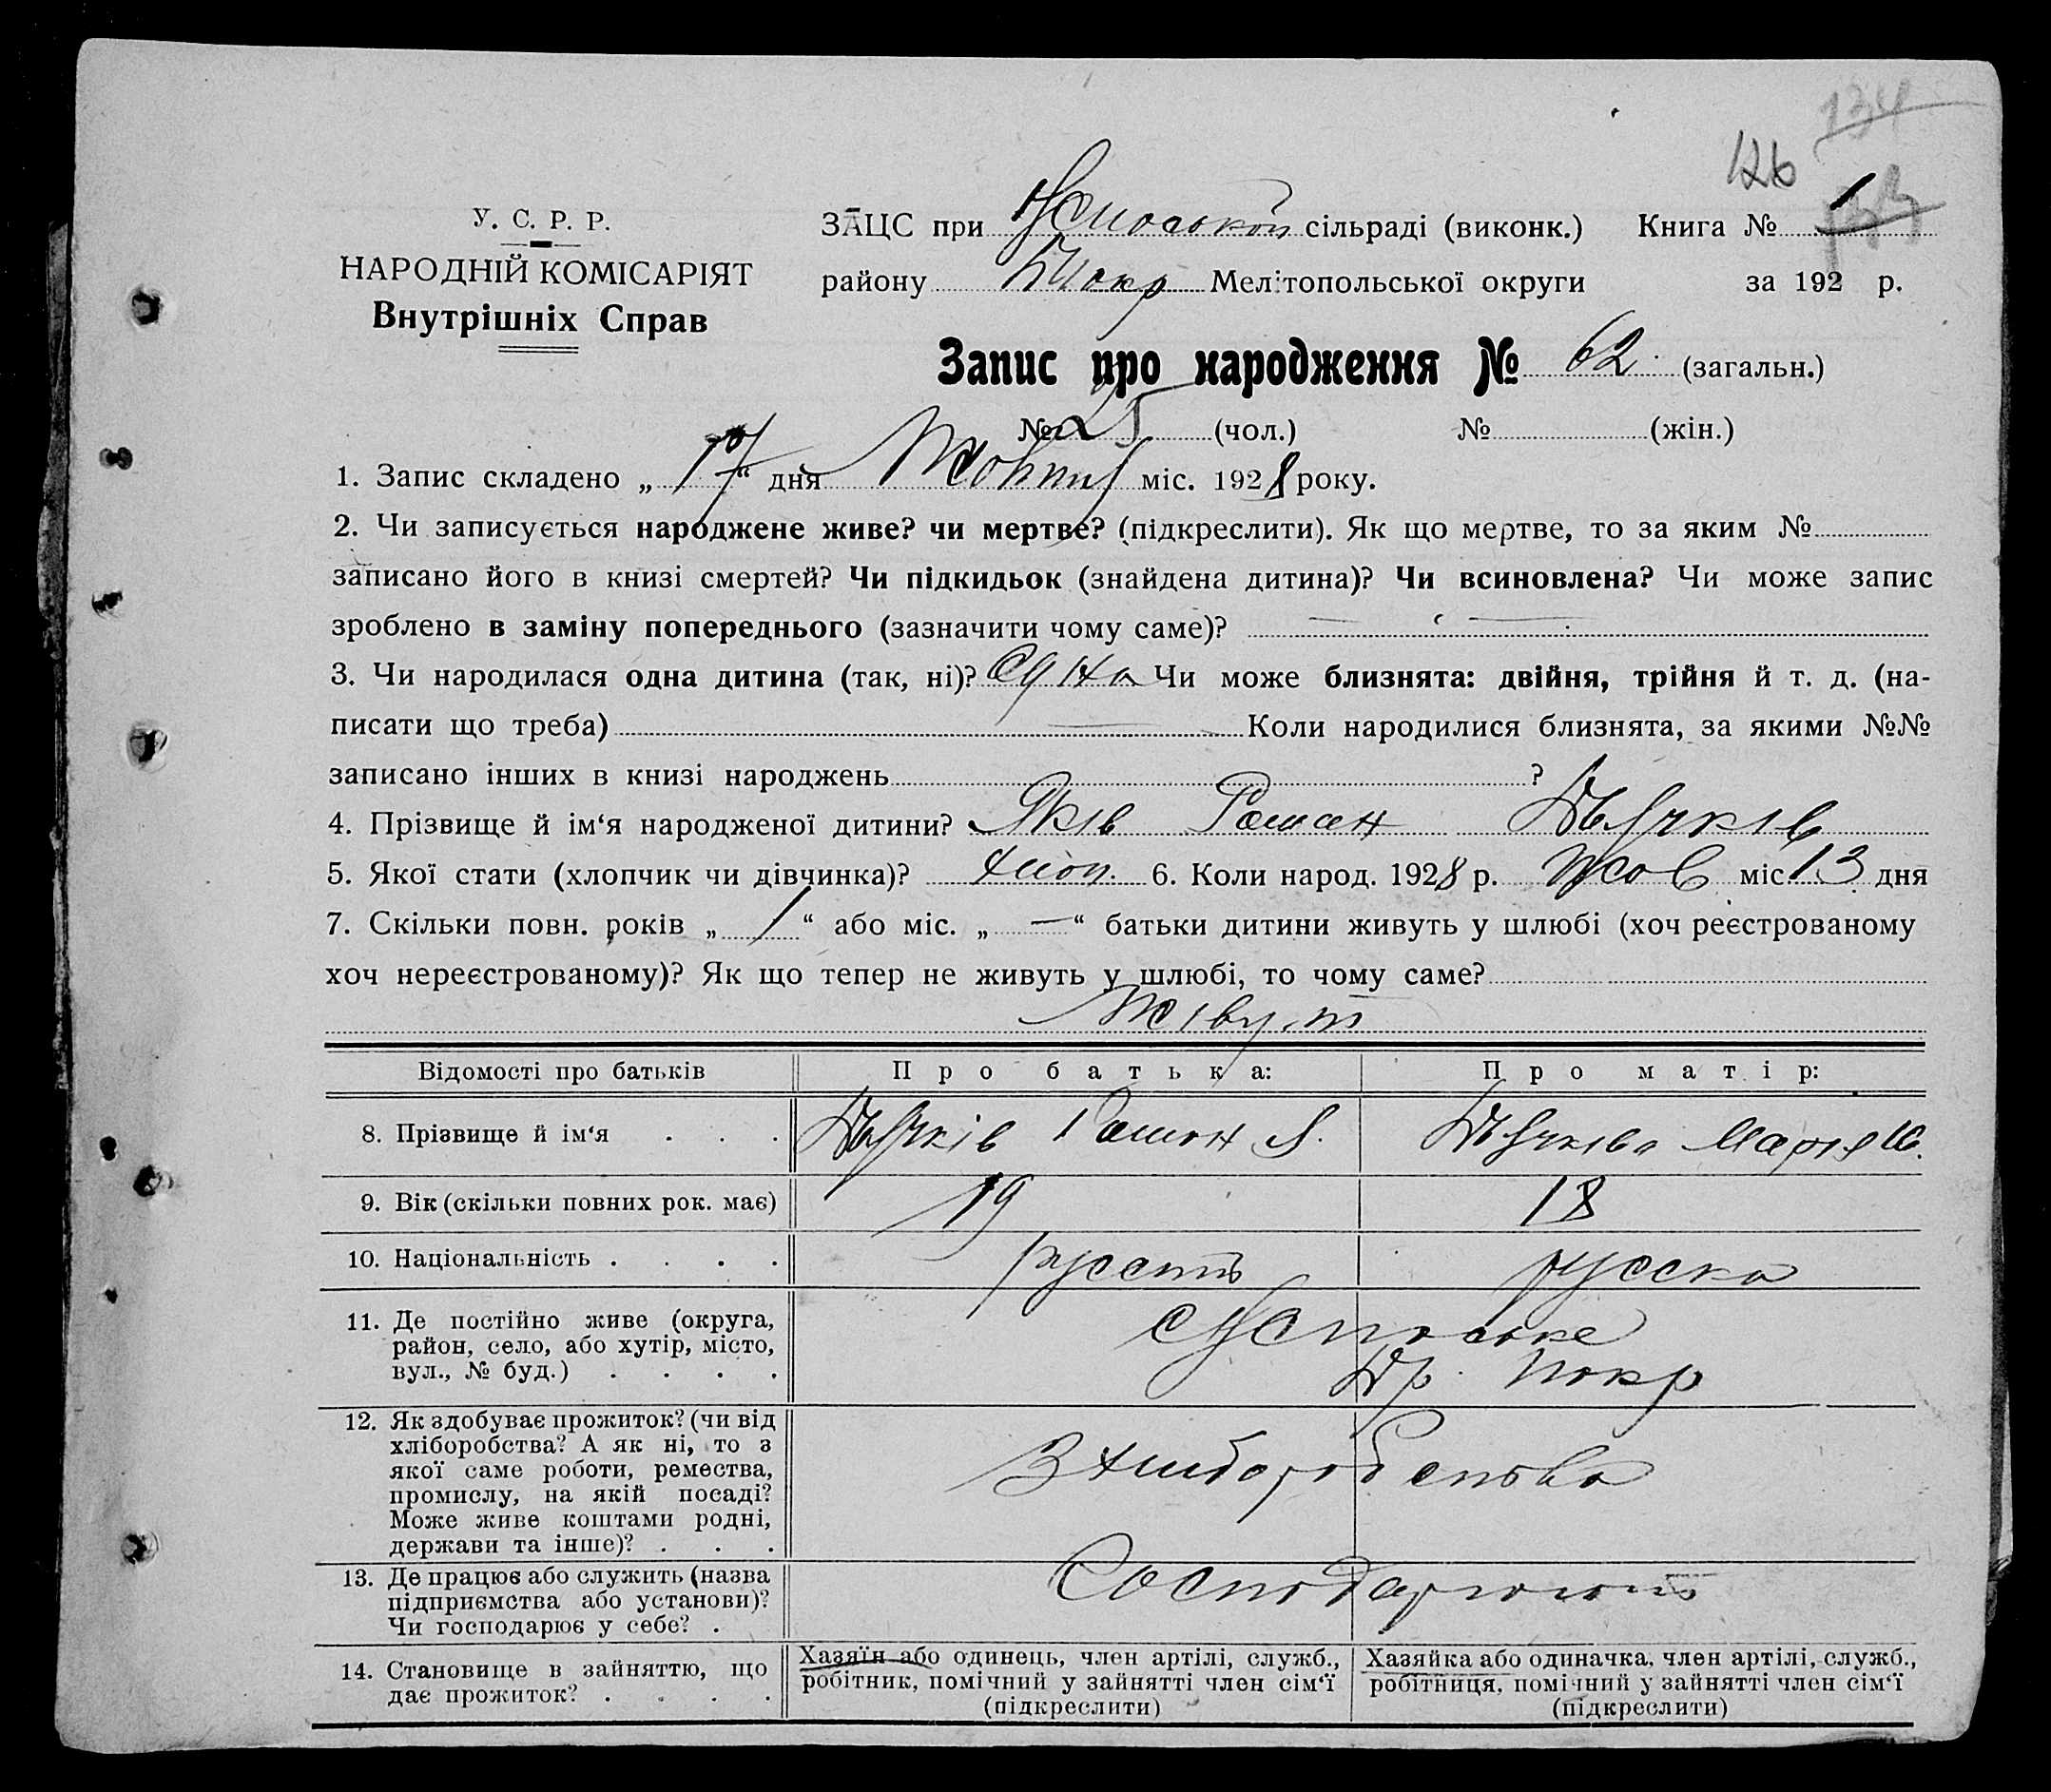 134
126
У. С. Р. Р.
НАРОДНІЙ КОМІСАРІЯТ
Внутрішніх Справ
ЗАЦС при сільраді (виконк.) Книга № 1
району Мелітопольської округи за 192 р.
Запис про народження № 62. (загальн.)
№ 25 (чол.) № (жін.)
1. Запис складено „17“ дня Жовтня міс. 1928 року.
2. Чи записується народжене живе? чи мертве? (підкреслити). Як що мертве, то за яким №
записано його в книзі смертей? Чи підкидьок (знайдена дитина)? Чи всиновлена? Чи може запис
зроблено в заміну попереднього (зазначити чому саме)? —
3. Чи народилася одна дитина (так, ні)? Одна Чи може близнята: двійня, трійня й т. д. (на-
писати що треба) — Коли народилися близнята, за якими №№
записано інших в книзі народжень ?
4. Прізвище й ім‘я народженої дитини? Яків Роман
5. Якої стати (хлопчик чи дівчинка)? хлоп. 6. Коли народ. 1928 р. Жов міс. 13 дня
7. Скільки повн. років „1“ або міс. „—“ батьки дитини живуть у шлюбі (хоч реєстрованому
хоч нереєстрованому)? Як що тепер не живуть у шлюбі, то чому саме?
Живут
Відомості про батьків Про батька: Про матір:
8. Прізвище й ім‘я . . . Роман Я. Марія
9. Вік (скільки повних рок. має) 19 18
10. Національність . . . . русска
11. Де постійно живе (округа,
район, село, або хутір, місто,
вул., № буд.) . . . .
12. Як здобуває прожиток? (чи від
хліборобства? А як ні, то з
якої саме роботи, ремества,
промислу, на якій посаді?
Може живе коштами родні,
держави та інше)? . . .
З хлиборобства
13. Де працює або служить (назва
підприємства або установи)?
Чи господарює у себе? .
Господарюють
14. Становище в зайняттю, що
дає прожиток? . . . .
Хазяїн або одинець, член артілі, служб.,
робітник, помічний у зайнятті член сім‘ї
(підкреслити)
Хазяйка або одиначка, член артілі, служб.,
робітниця, помічний у зайнятті член сім‘ї
(підкреслити)